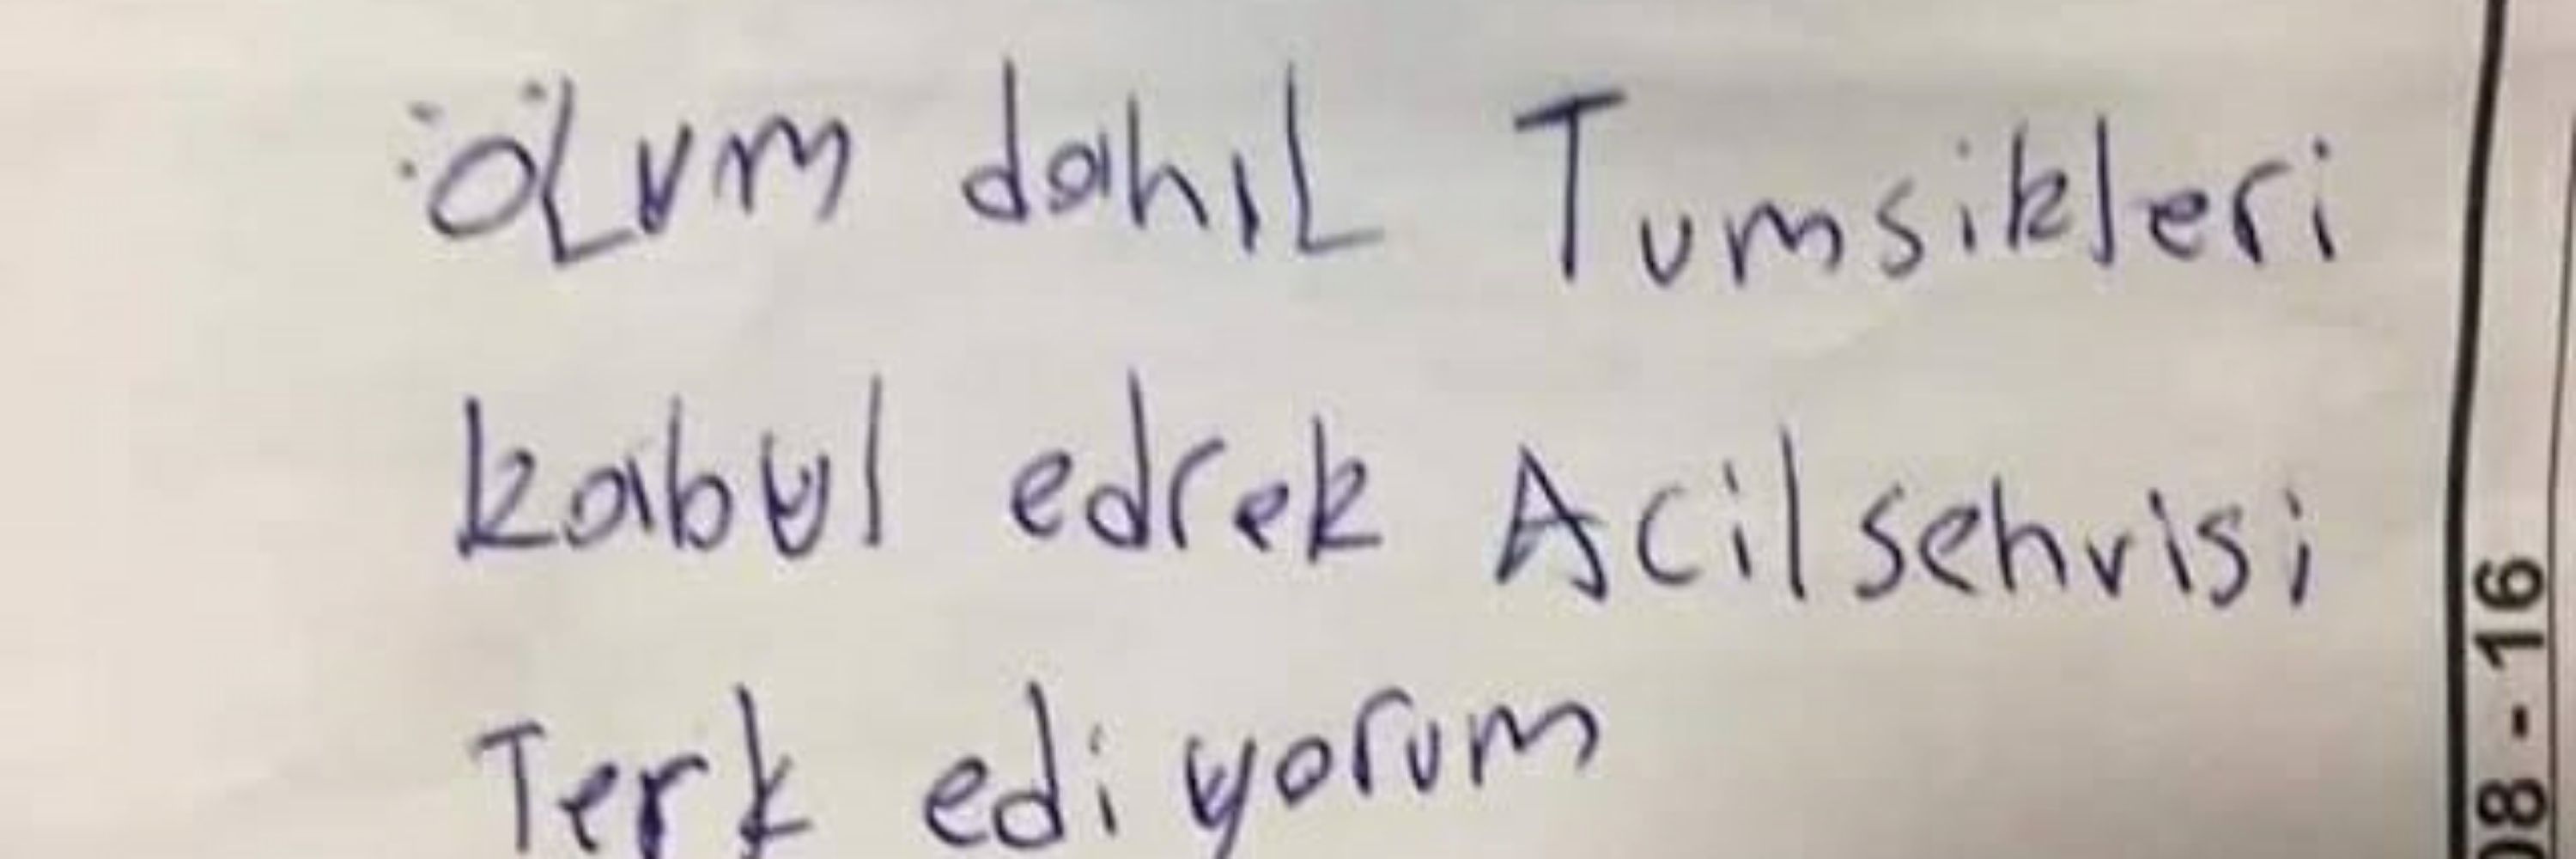 ölum dahıl Tumsikleri
kabul edrek Acil sehvisi
Terk edi yorum
08-16